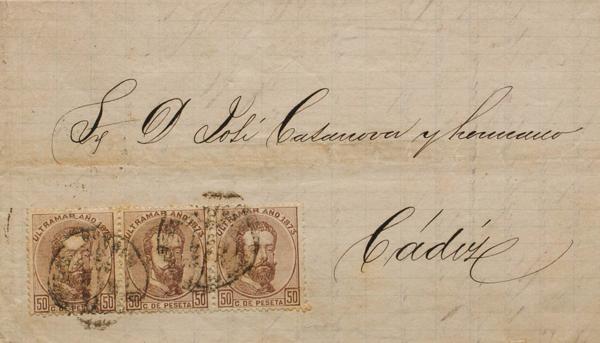 Sr D José Casanova y hermano
Cádiz
ULTRAMAR AÑO 1873
50 50
C. DE PESETA
ULTRAMAR AÑO 1873
50 50
C. DE PESETA
ULTRAMAR AÑO 1873
50 50
C. DE PESETA